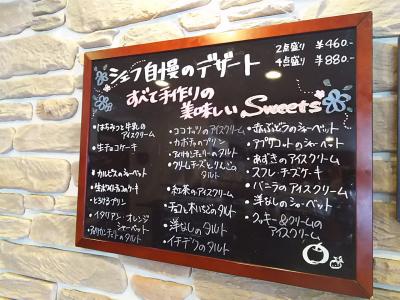 シェフ自慢のデザート
2点盛り ¥460-
4点盛り ¥880-
すべて手作りの
美味しい Sweets
・はちみつと牛乳の
アイスクリーム
・生チョコケーキ
・カルピスのシャーベット
・とろけるプリン
・イタリアン・オレンジ
シャーベット
・アメリカンチェリーのタルト
・ココナッツのアイスクリーム
・カボチャのプリン
・アメリカンチェリーのタルト
・クリームチーズとりんごの
タルト
・紅茶のアイスクリーム
・チョコと木いちごのタルト
・洋なしのタルト
・イチヂクのタルト
・赤ぶどうのシャーベット
・アプリコットのシャーベット
・あずきのアイスクリーム
・スフレチーズケーキ
・バニラのアイスクリーム
・洋なしのシャーベット
・クッキー&クリームの
アイスクリーム